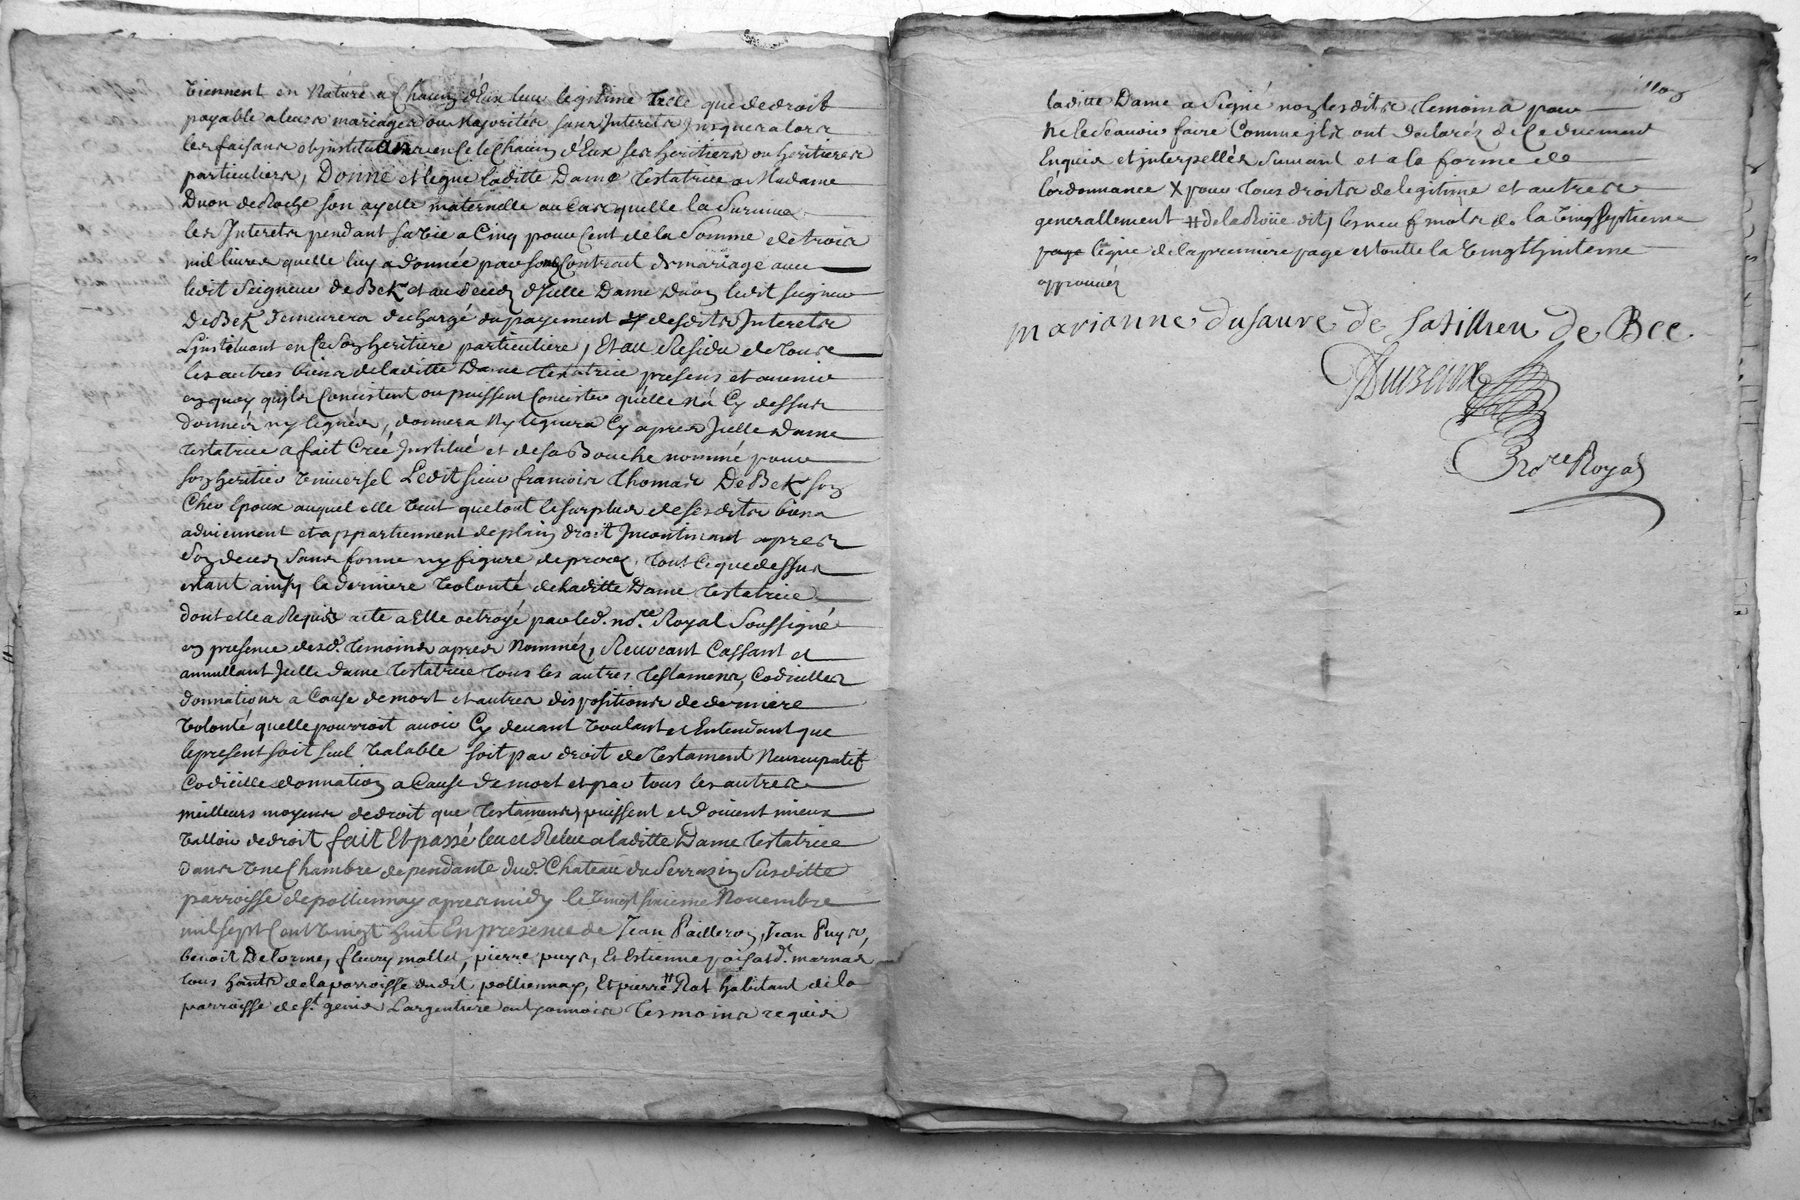 viennent en Nature a Chacun d'Eux leur legitime telle que de droit
payable a leurs mariages ou Majorités sans Interets Jusques alors
les faisant et instituant en Ce le Chacun d'Eux ses heritiers ou heritieres
particuliers, Donne et legue laditte Dame testatrice a Madame
Duon de Roche son ayeulle maternelle au Cas quelle la Survive
les Interets pendant sa vie a Cinq pour Cent de la Somme de trois
mil livres quelle luy a donnée par son Contrait de mariage avec
ledit Seigneur De Bek et au deced d'Jcelle Dame Duon ledit seigneur
De Bek demeurera dechargé du payement desdits Interets
L'instituant en Ce Son heritiere particuliere, Et au Residu de tous
les autres biens de laditte Dame testatrice presens et avenir
en quoy quils Concistent ou puissent Concister quelle n'a Cy dessus
donnés ny legués, donnera ny leguera Cy apres Jcelle Dame
testatrice a fait Créé Institué et de sa Bouche nommé pour
son heritier universel Ledit sieur francois Thomas De Bek son
Cher Epoux auquel elle veut que tout le surplus de ses dits biens
adviennent et appartiennent de plain droit Incontinant apres
son deced sans forme ny figure de proces, tout Ce que dessus
estant ainsy la derniere volonté de laditte Dame testatrice
dont elle a Requis acte a Elle octroyé par led. no.re Royal Soussigné
en presence desd. temoins apres Nommés, Revocant Cassant et
annullant Jcelle dame testatrice tous les autres testamens, Codicilles
donnations a Cause de mort et autres dispositions de derniere
volonté quelle pourroit avoir Cy devant voulant et Entendant que
le present soit seul valable soit par droit de testament Nuncupatif
Codicille donnation a Cause de mort et par tous les autres
meilleurs moyens de droit que testamens puissent et doivent mieux
valloir de droit fait Et passé leu et Releu a laditte Dame testatrice
dans une Chambre dependante dud. Chateau du Serrazin Susditte
parroisse de pollionnay apres midy le vingt sixieme Novembre
mil sept Cent vingt huit En presence de Jean Pailleron, Jean Puys,
benoit Delorme, fleury mollet, pierre puys, Et Estienne
tous habts de la parroisse dudit pollionnay, Et pierre # Rat habitant de la
parroisse de st. genis L'argentiere temoins requis
laditte Dame a Signé non lesdits temoins pour
ne le Scavoir faire Comme ils ont declarés de Ce duement
Enquis et interpellés Suivant et a la forme de
l'ordonnance X pour tous droits de legitime et autres
generallement # de la Roüe dit, les neuf mots de la vingt septieme
page ligne de la premiere page et toutte la vingt huitieme
approuvés
marianne dusauve de satillieu de Bec.
No.re Royal